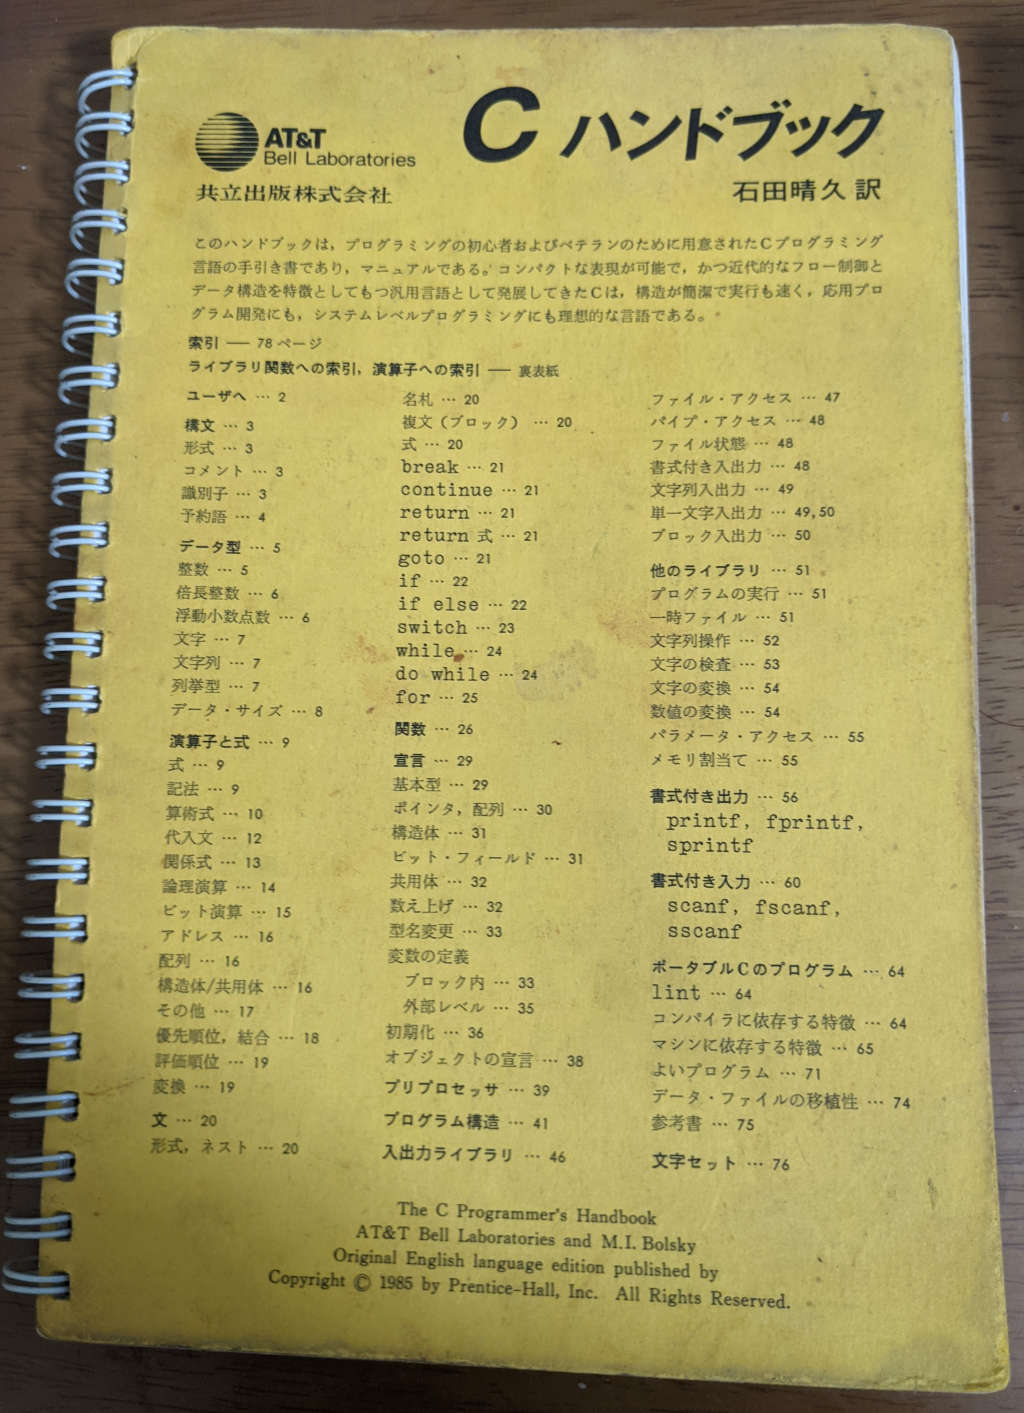 AT&T
Bell Laboratories
C ハンドブック
共立出版株式会社
石田晴久 訳
このハンドブックは，プログラミングの初心者およびベテランのために用意されたCプログラミング
言語の手引き書であり，マニュアルである。コンパクトな表現が可能で，かつ近代的なフロー制御と
データ構造を特徴としてもつ汎用言語として発展してきたCは，構造が簡潔で実行も速く，応用プロ
グラム開発にも，システムレベルプログラミングにも理想的な言語である。
索引 ― 78 ページ
ライブラリ関数への索引，演算子への索引 ― 裏表紙
ユーザへ … 2
構文 … 3
形式 … 3
コメント … 3
識別子 … 3
予約語 … 4
データ型 … 5
整数 … 5
倍長整数 … 6
浮動小数点数 … 6
文字 … 7
文字列 … 7
列挙型 … 7
データ・サイズ … 8
演算子と式 … 9
式 … 9
記法 … 9
算術式 … 10
代入文 … 12
関係式 … 13
論理演算 … 14
ビット演算 … 15
アドレス … 16
配列 … 16
構造体/共用体 … 16
その他 … 17
優先順位，結合 … 18
評価順位 … 19
変換 … 19
文 … 20
形式，ネスト … 20
名札 … 20
複文（ブロック） … 20
式 … 20
break … 21
continue … 21
return … 21
return 式 … 21
goto … 21
if … 22
if else … 22
switch … 23
while … 24
do while … 24
for … 25
関数 … 26
宣言 … 29
基本型 … 29
ポインタ，配列 … 30
構造体 … 31
ビット・フィールド … 31
共用体 … 32
数え上げ … 32
型名変更 … 33
変数の定義
ブロック内 … 33
外部レベル … 35
初期化 … 36
オブジェクトの宣言 … 38
プリプロセッサ … 39
プログラム構造 … 41
入出力ライブラリ … 46
ファイル・アクセス … 47
パイプ・アクセス … 48
ファイル状態 … 48
書式付き入出力 … 48
文字列入出力 … 49
単一文字入出力 … 49,50
ブロック入出力 … 50
他のライブラリ … 51
プログラムの実行 … 51
一時ファイル … 51
文字列操作 … 52
文字の検査 … 53
文字の変換 … 54
数値の変換 … 54
パラメータ・アクセス … 55
メモリ割当て … 55
書式付き出力 … 56
printf, fprintf,
sprintf
書式付き入力 … 60
scanf, fscanf,
sscanf
ポータブルCのプログラム … 64
lint … 64
コンパイラに依存する特徴 … 64
マシンに依存する特徴 … 65
よいプログラム … 71
データ・ファイルの移植性 … 74
参考書 … 75
文字セット … 76
The C Programmer's Handbook
AT&T Bell Laboratories and M.I. Bolsky
Original English language edition published by
Copyright © 1985 by Prentice-Hall, Inc. All Rights Reserved.